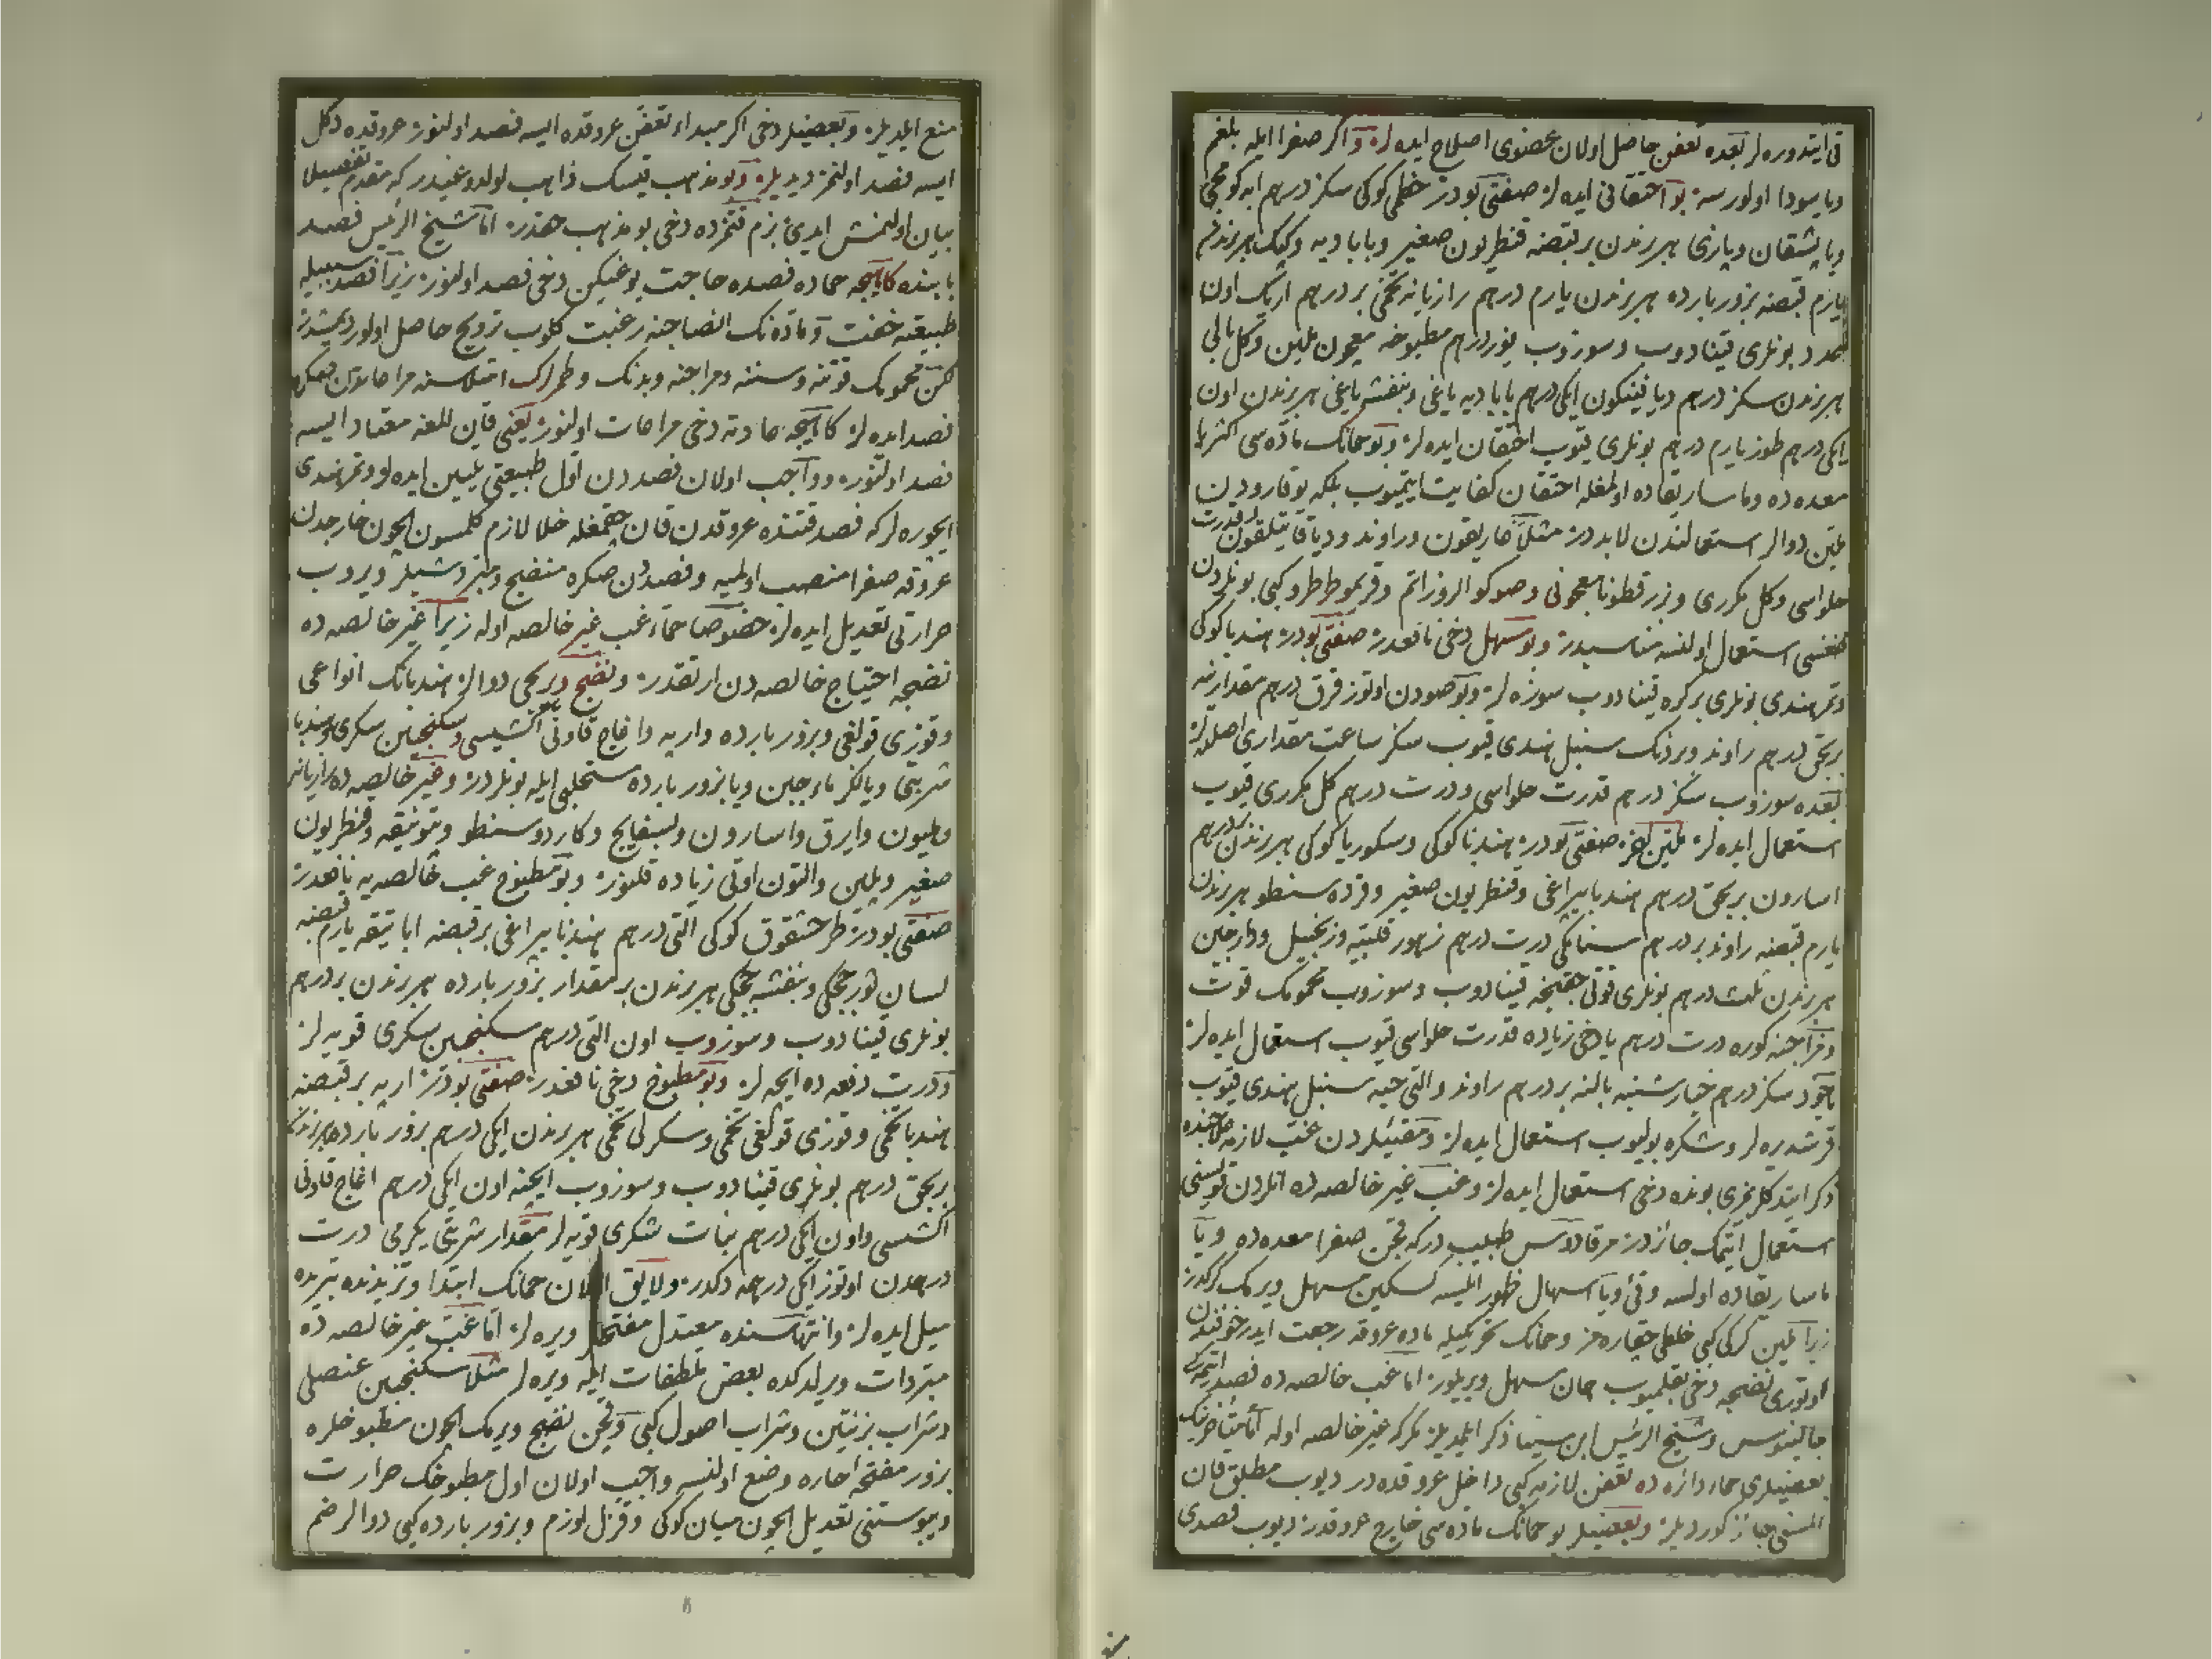 قی ایتدوره لر بعده تعفن حاصل اولان عضوی اصلاح ایده لر و اکر صفرا ایله بلغم
ویا سودا اولورسه بو احتقانی ایده لر صفتی بودر خطمی کوکی سکز درهم ابه کومجی
ویا پشقان ویازی هر برندن بر قبضه قنطریون صغیر وبابادیه وکپک هر برندن
یارم قبضه بزور بارده هر برندن یارم درهم رازیانه تخمی بر درهم اریک اون
عدد بونلری قینادوب وسوزوب یوز درهم مطبوخه معجون ملین وکل بالی
هر برندن سکز درهم دیافینکون ایکی درهم بابادیه یاغی وبنفشه یاغی هر برندن اون
ایکی درهم طوز یارم درهم بونلری قیوب احتقان ایده لر وبو حمانک ماده سی اکثریا
معده ده وماساریقاده اولمغله احتقان کفایت ایتمیوب بلکه یوقارودن
ملین دوالر استعمالندن لابددر مثلا غاریقون وراوند ودیاقاتیلقون قدرت
حلواسی وکل مکرری وبزرقطونا معجونی وصوکو الروزاتم وقریموطرطرو کبی بونلردن
قنغیسی استعمال اولنسه مناسبدر وبو مسهل دخی نافعدر صفتی بودر هندبا کوکی
وتمر هندی بونلری بر کره قینادوب سوزه لر وبو صودن اوتوز قرق درهم مقدارینه
بر بجق درهم راوند وبر دنک سنبل هندی قیوب سکز ساعت مقداری اصلده لر
بعده سوزوب سکز درهم قدرت حلواسی ودرت درهم کل مکرری قیوب
استعمال ایده لر ملین اخر صفتی بودر هندبا کوکی وسکوریا کوکی هر برندن بر درهم
اسارون بر بجق درهم هندبا یپراغی وقنطریون صغیر وقرده سنطو هر برندن
یارم قبضه راوند بر درهم سنامکی درت درهم زهور قلبیه وزنجبیل ودارچین
هر برندن ثلث درهم بونلری قوتی چقنجه قینادوب وسوزوب محمومک قوت
ومزاجنه کوره درت درهم یا دخی زیاده قدرت حلواسی قیوب استعمال ایده لر
یاخود سکز درهم خیارشنبه بالنه بر درهم راوند والتی حبه سنبل هندی قیوب
قرشدیره لر وشکره بولیوب استعمال ایده لر ومقیئلردن غب لازمه علاجنده
ذکر ایتدکلریمزی بونده دخی استعمال ایده لر وغب غیر خالصه ده انلردن قویسنی
استعمال ایتمک جائزدر مرقادوس طبیب درکه قچن صفرا معده ده ویا
ماساریقاده اولسه وقئ ویا اسهال ظهور ایلیسه تسکین مسهل ویرمک کرکدر
زیرا ملین کرکی کبی خلطی چقاره مز وحمانک تحریکیله ماده عروقه رجعت ایدر خوفندن
اوتوری نضجه دخی بقلمیوب همان مسهل ویریلور اما غب خالصه ده فصد ایتمک
جالینوس وشیخ الرئیس ابن سینا ذکر ایلمدیلر مکرکه غیر خالصه اوله اما متأخرینک
بعضیلری حماء دائره ده تعفن لازمه کبی داخل عروقده در دیوب مطلق قان
المسنی جائز کوردیلر وبعضیلر بو حمانک ماده سی خارج عروقدر دیوب فصدی
منع ایلدیلر وبعضیلر دخی اکر مبداء تعفن عروقده ایسه فصد اولنور عروقده دکل
ایسه فصد اولنمز دیدیلر وبو مذهب قیسک ذاهب اولدوغیدر که مقدم تفصیلا
بیان اولنمش ایدی بزم قتمزده دخی بو مذهب حقدر اما شیخ الرئیس فصد
بابنده کاهیجه حماده فصده حاجت یوغیکن دخی فصد اولنور زیرا فصد سببیله
طبیعته خفت وماده نک انضاجنه رغبت کلوب ترویح حاصل اولور دیمشدر
لکن محمومک قوتنه وسننه ومزاجنه وبدنک وطمرلرک امتلاسنه مراعاتدن صکره
فصد ایده لر کاهیجه عادته دخی مراعات اولنور یعنی قان للمغه معتاد ایسه
فصد اولنور وواجب اولان فصددن اول طبیعتی تلیین ایده لر وتمر هندی
ایچوره لر که فصد وقتنده عروقدن قان چقمغله خلا لازم کلمسون ایچون خارجدن
عروقه صفرا منصب اولمیه وفصددن صکره منضج ومبرد شیلر ویروب
حرارتی تعدیل ایده لر خصوصا حماء غب غیر خالصه اوله زیرا غیر خالصه ده
نضجه احتیاج خالصه دن ارتقدر ونضج ویریجی دوالر هندبانک انواعی
وقوزی قولغی وبزور بارده واربه واغاج قاونی اکشیسی وسکنجبین سکری وهندبا
شربتی ویالکز ماء جبن ویا بزور بارده مستحلبی ایله بونلردر وغیر خالصه ده رازیانه
وملیون وایرق واسارون وبسفایج وکاردوسنطو وبتونیقه وقنطریون
صغیر ویلپن والتون اوتی زیاده قلنور وبو مطبوخ غب خالصه یه نافعدر
صفتی بودر طرخشقوق کوکی التی درهم هندبا یپراغی بر قبضه اباتیقه یارم قبضه
لسان ثور چچکی وبنفشه چچکی هر برندن بر مقدار بزور بارده هر برندن بر درهم
بونلری قینادوب وسوزوب اون التی درهم سکنجبین سکری قویه لر
ودرت دفعه ده ایچه لر وبو مطبوخ دخی نافعدر صفتی بودر اربه بر قبضه
هندبا تخمی وقوزی قولغی تخمی وسمکرلی تخمی هر برندن ایکی درهم بزور بارده هر برندن
بر بجق درهم بونلری قینادوب وسوزوب ایچنه اون ایکی درهم اغاج قاونی
اکشیسی واون ایکی درهم نبات شکری قویه لر مقدار شربتی یکرمی درت
درهمدن اوتوز ایکی درهمه دکدر ولایق اولان حمانک ابتدا وتزیدنده تبریده
میل ایده لر وانتهاسنده معتدل مفتحلر ویره لر اما غب غیر خالصه ده
مبردات ویرلدکده بعض ملطفات ایله ویره لر مثلا سکنجبین عنصلی
وشراب بزنتین وشراب اصول کبی وقچن نضج ویرمک ایچون مطبوخلره
بزور مفتحه حاره وضع اولنسه واجب اولان اول مطبوخک حرارت
ویبوستنی تعدیل ایچون میان کوکی وقزل اوزم وبزور بارده کبی دوالر ضم